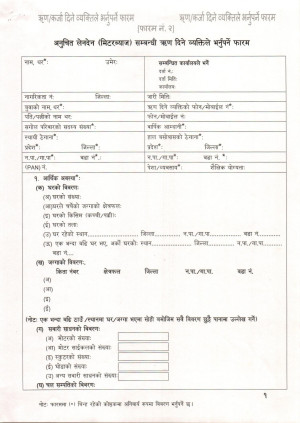 ऋण/कर्जा दिने व्यक्तिले भर्नुपर्ने फारम
ऋण/कर्जा दिने व्यक्तिले भर्नुपर्ने फारम
[फारम नं. २]
अनुचित लेनदेन (मिटरब्याज) सम्बन्धी ऋण दिने व्यक्तिले भर्नुपर्ने फारम
नाम, थर*: उमेर: सम्बन्धित कार्यालयले भर्ने
दर्ता नं.:
दर्ता मिति:
कार्यालय:
नागरिकता नं.: जिल्ला: जारी मिति:
बुवाको नाम, थर*: ऋण दिने व्यक्तिको फोन/मोबाईल नं.:
पति/पत्नीको नाम थर: फोन/मोबाईल नं.:
सगोल परिवारको सदस्य संख्या*: वार्षिक आम्दानी*:
स्थायी ठेगाना*: हाल बसोबासको ठेगाना*:
प्रदेश*: जिल्ला*: प्रदेश*: जिल्ला*:
न.पा./गा.पा*: वडा नं*.: न.पा./गा.पा*: वडा नं*.:
(PAN) नं. पेशा/व्यवसाय*: शैक्षिक योग्यता:
१. आर्थिक अवस्था*:
(क) घरको विवरण:
(अ) घरको संख्या:
(आ) घरले चर्चेको जग्गाको क्षेत्रफल:
(इ) घरको किसिम (कच्ची/पक्की):
(ई) घरको तला:
(उ) घर रहेको स्थान: जिल्ला न.पा./गा.पा. वडा नं.
(ऊ) एक भन्दा बढि घर भए, अर्को घरको: स्थान जिल्ला न.पा./गा.पा.
वडा नं.
(ख) जग्गाको विवरण:
कित्ता नम्बर क्षेत्रफल जिल्ला न.पा./गा.पा. वडा नं.
(अ)
(आ)
(इ)
(ई)
(नोट: एक भन्दा बढि ठाउँ /स्थानमा घर/जग्गा भएमा सोही बमोजिम सबै विवरण छुट्टै पानामा उल्लेख गर्ने)
ग) सवारी साधनको विवरण:
(अ) मोटरको संख्या:
(आ) मोटर साईकलको संख्या:
(इ) स्कुटरको संख्या:
(ई) घोडाको संख्या:
(उ) अन्य सवारी साधनको संख्या:
घ) चल सम्पत्तिको विवरण:
१
नोट: फारममा (*) चिन्ह रहेको कोष्ठकमा अनिवार्य रूपमा विवरण भर्नुपर्ने छ।